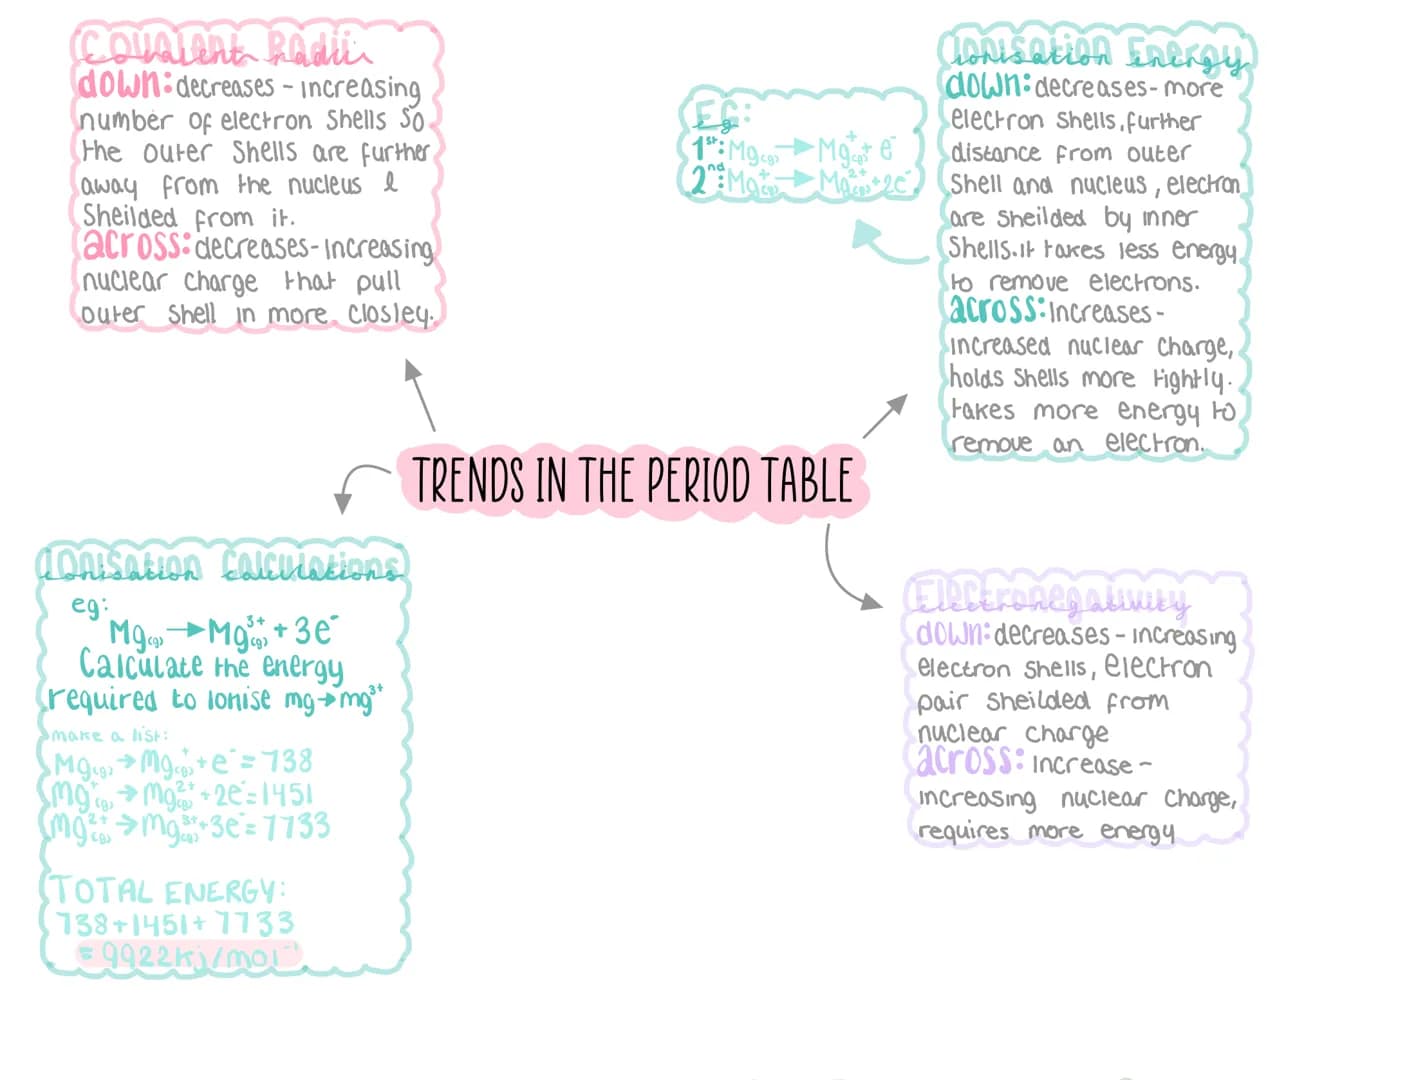 Covalent Radii
covalent radii
down: decreases - increasing
number of electron shells so
the outer shells are further
away from the nucleus &
sheilded from it.
across: decreases - increasing
nuclear charge that pull
outer shell in more closley.
EG:
eg
1st: Mg(g) → Mg+(g) + e-
2nd: Mg+(g) → Mg2+(g) + 2e-
Ionisation Energy
ionisation energy
down: decreases - more
electron shells, further
distance from outer
shell and nucleus, electron
are sheilded by inner
shells. it takes less energy
to remove electrons.
across: increases -
increased nuclear charge,
holds shells more tightly.
takes more energy to
remove an electron.
TRENDS IN THE PERIOD TABLE
Ionisation Calculations
ionisation calculations
eg:
Mg(g) → Mg3+(g) + 3e-
Calculate the energy
required to ionise mg → mg3+
make a list:
Mg(g) → Mg+(g) + e- = 738
mg+(g) → mg2+(g) + 2e- = 1451
mg2+(g) → mg3+(g) + 3e- = 7733
TOTAL ENERGY:
738 + 1451 + 7733
= 9922 kj/mol-1
Electronegativity
electronegativity
down: decreases - increasing
electron shells, electron
pair sheilded from
nuclear charge
across: increase -
increasing nuclear charge,
requires more energy